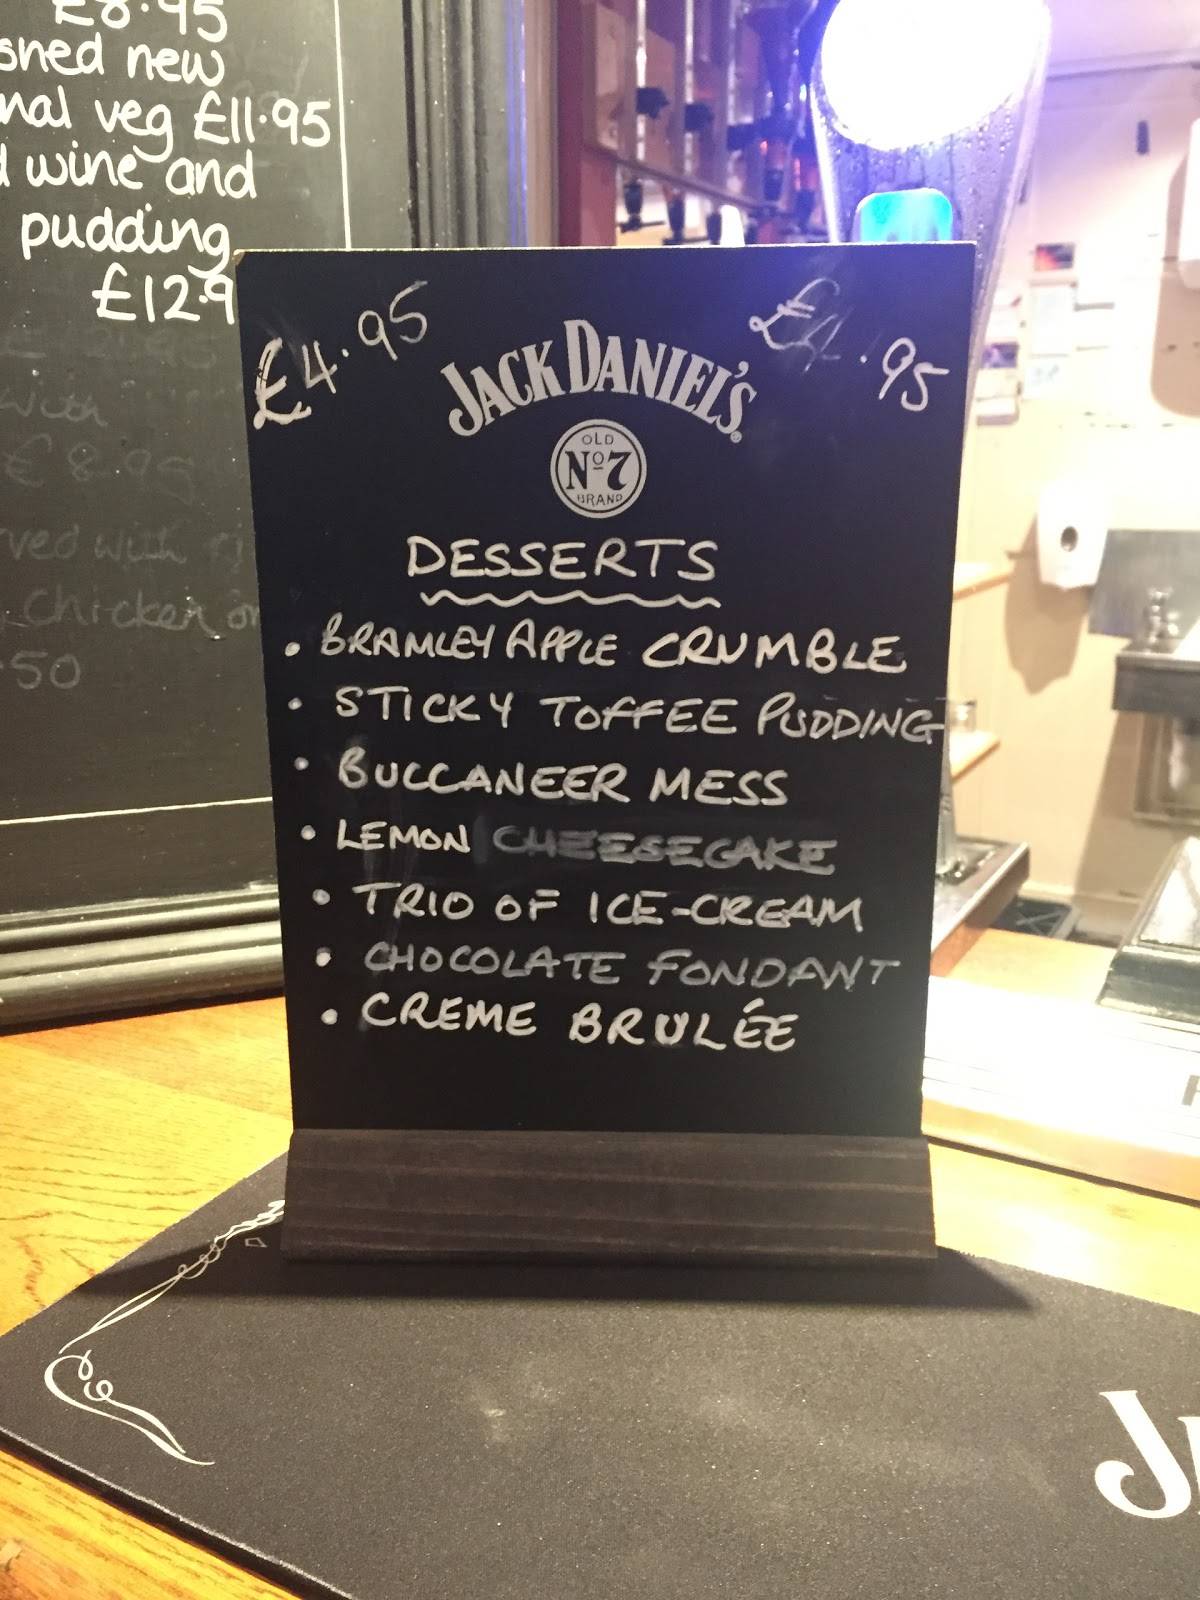 £8·95
new
veg £11·95
wine and
pudding
£12·9
with
£8.95
with
chicken or
·50
£4.95
£4.95
JACK DANIEL'S
OLD
Nº7
BRAND
DESSERTS
• BRAMLEY APPLE CRUMBLE
• STICKY TOFFEE PUDDING
• BUCCANEER MESS
• LEMON CHEESECAKE
• TRIO OF ICE-CREAM
• CHOCOLATE FONDANT
• CREME BRULÉE